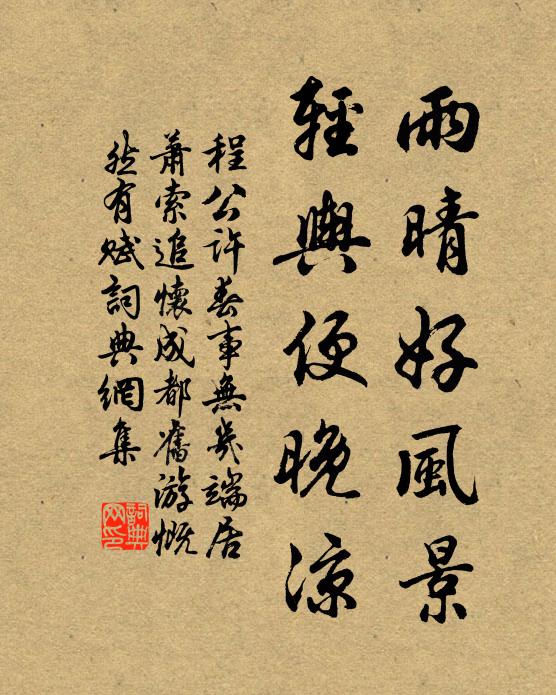 雨晴好風景
輕輿便晚涼
程公許春事無幾端居
蕭索追懷成都舊游慨
然有賦詞典網集
詞典
网印